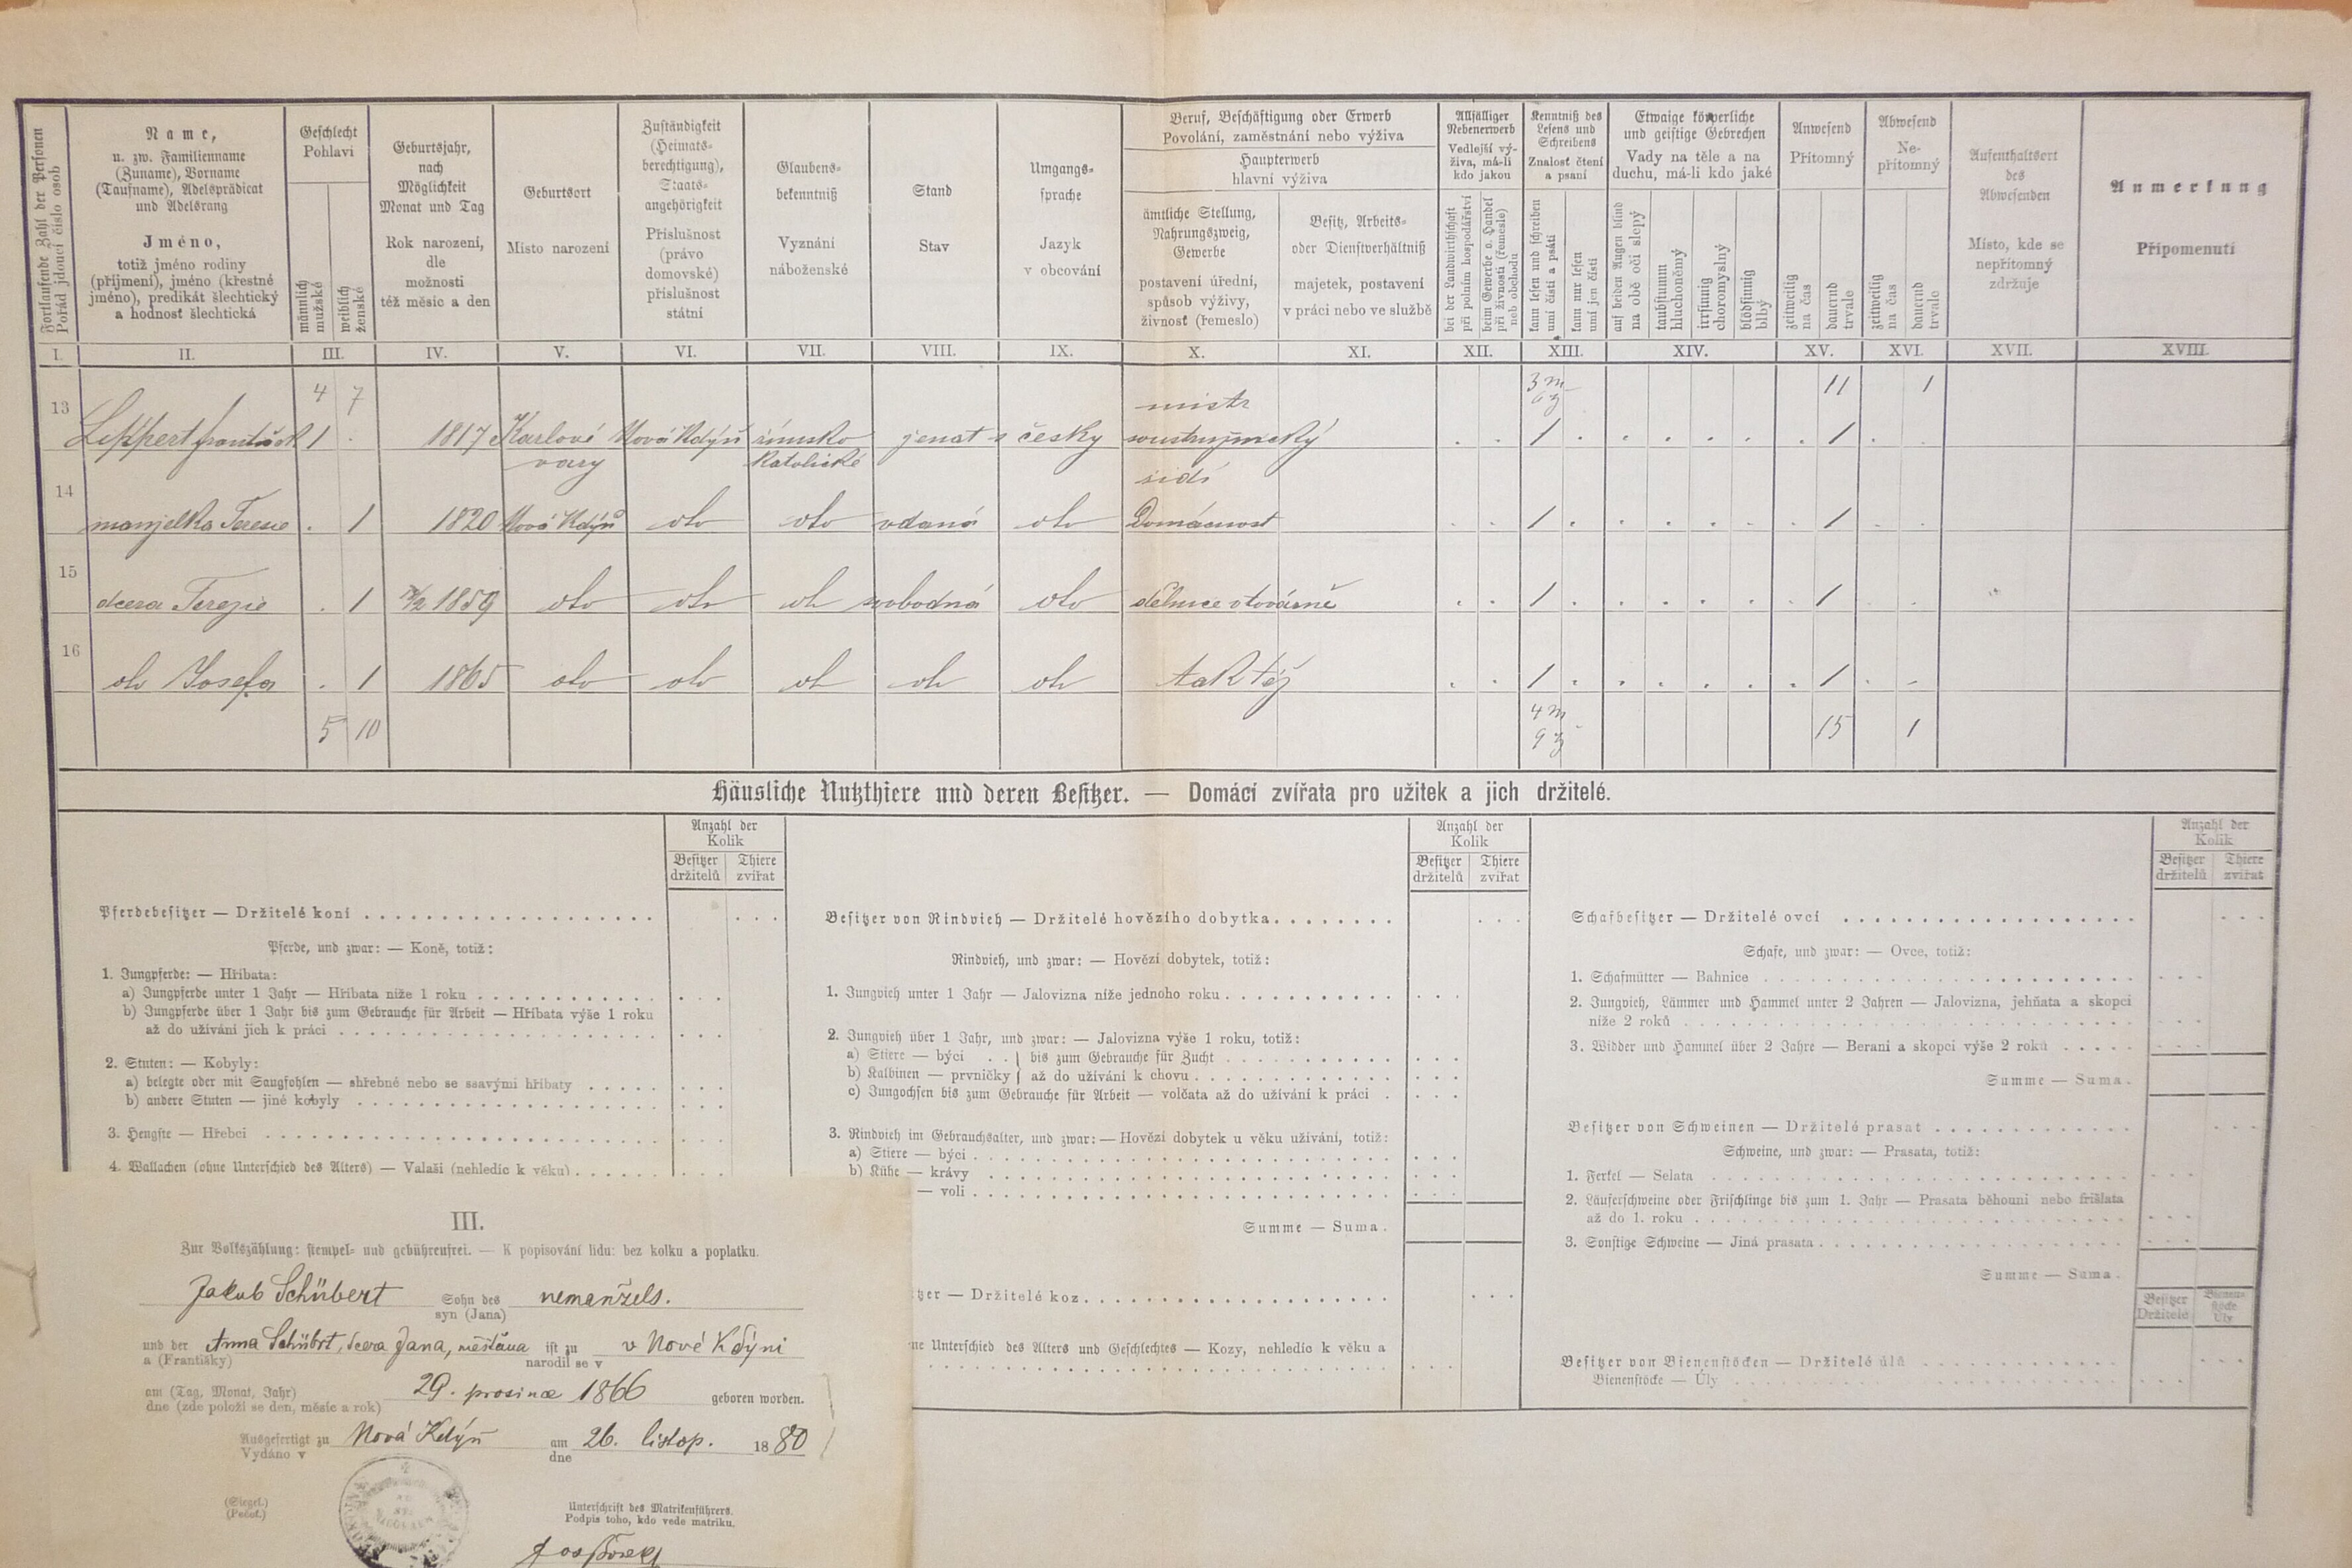 Fortlaufende Zahl der Personen
Pořád jdoucí číslo osob
Name,
u. zw. Familienname
(Zuname), Vorname
(Taufname), Adelsprädicat
und Adelsrang
Jméno,
totiž jméno rodiny
(příjmení), jméno (křestné
jméno), predikát šlechtický
a hodnost šlechtická
Geschlecht
Pohlaví
männlich
mužské
weiblich
ženské
Geburtsjahr,
nach
Möglichkeit
Monat und Tag
Rok narození,
dle
možnosti
též měsíc a den
Geburtsort
Místo narození
Zuständigkeit
(Heimats-
berechtigung),
Staats-
angehörigkeit
Příslušnost
(právo
domovské)
příslušnost
státní
Glaubens-
bekenntniß
Vyznání
náboženské
Stand
Stav
Umgangs-
sprache
Jazyk
v obcování
Beruf, Beschäftigung oder Erwerb
Povolání, zaměstnání nebo výživa
Haupterwerb
hlavní výživa
ämtliche Stellung,
Nahrungszweig,
Gewerbe
postavení úřední,
spůsob výživy,
živnost (řemeslo)
Besitz, Arbeits-
oder Dienstverhältniß
majetek, postavení
v práci nebo ve službě
Allfälliger
Nebenerwerb
Vedlejší vý-
živa, má-li
kdo jakou
bei der Landwirthschaft
při polním hospodářství
beim Gewerbe o. Handel
při živnosti (řemesle)
neb obchodu
Kenntniß des
Lesens und
Schreibens
Znalost čtení
a psaní
kann lesen und schreiben
umí čísti a psáti
kann nur lesen
umí jen čísti
Etwaige körperliche
und geistige Gebrechen
Vady na těle a na
duchu, má-li kdo jaké
auf beiden Augen blind
na obě oči slepý
taubstumm
hluchoněmý
irrsinnig
choromyslný
blödsinnig
blbý
Anwesend
Přítomný
zeitweilig
na čas
dauernd
trvale
Abwesend
Ne-
přítomný
zeitweilig
na čas
dauernd
trvale
Aufenthaltsort
des
Abwesenden
Místo, kde se
nepřítomný
zdržuje
Anmerkung
Připomenutí
I. II. III. IV. V. VI. VII. VIII. IX. X. XI. XII. XIII. XIV. XV. XVI. XVII. XVIII.
4 7 mistr 3 m 6 ž 11 1
13 Lippert František 1 . 1817 Karlové vary Nová Kdýň římsko katolické ženat česky soustružnický . . 1 . . . . . . 1 . .
židí
14 manželka Teresie . 1 1820 Nová Kdýň oto oto vdaná oto Domácnost . . 1 . . . . . . 1 . .
15 dcera Terezie . 1 1859 oto oto oto svobodná oto dělnice v továrně . . 1 . . . . . . 1 . .
16 oto Josefa . 1 1865 oto oto oto oto oto taktéž . . 1 . . . . . . 1 . .
5 10 4 m 9 ž 15 1
Häusliche Nutzthiere und deren Besitzer. — Domácí zvířata pro užitek a jich držitelé.
Anzahl der
Kolik
Besitzer
držitelů
Thiere
zvířat
Pferdebesitzer — Držitelé koní
Pferde, und zwar: — Koně, totiž:
1. Jungpferde: — Hříbata:
a) Jungpferde unter 1 Jahr — Hříbata níže 1 roku
b) Jungpferde über 1 Jahr bis zum Gebrauche für Arbeit — Hříbata výše 1 roku
až do užívání jich k práci
2. Stuten: — Kobyly:
a) belegte oder mit Saugfohlen — shřebné nebo se ssavými hříbaty
b) andere Stuten — jiné kobyly
3. Hengste — Hřebci
4. Wallachen (ohne Unterschied des Alters) — Valaši (nehledíc k věku)
Anzahl der
Kolik
Besitzer
držitelů
Thiere
zvířat
Besitzer von Rindvieh — Držitelé hovězího dobytka
Rindvieh, und zwar: — Hovězí dobytek, totiž:
1. Jungvieh unter 1 Jahr — Jalovizna níže jednoho roku
2. Jungvieh über 1 Jahr, und zwar: — Jalovizna výše 1 roku, totiž:
a) Stiere — býci . . } bis zum Gebrauche für Zucht
b) Kalbinen — prvničky } až do užívání k chovu
c) Jungochsen bis zum Gebrauche für Arbeit — volčata až do užívání k práci
3. Rindvieh im Gebrauchsalter, und zwar: — Hovězí dobytek u věku užívání, totiž:
a) Stiere — býci
b) Kühe — krávy
— voli
Summe — Suma.
tzer — Držitelé koz
ne Unterschied des Alters und Geschlechtes — Kozy, nehledíc k věku a
Anzahl der
Kolik
Besitzer
držitelů
Thiere
zvířat
Schafbesitzer — Držitelé ovcí
Schafe, und zwar: — Ovce, totiž:
1. Schafmütter — Bahnice
2. Jungvieh, Lämmer und Hammel unter 2 Jahren — Jalovizna, jehňata a skopci
níže 2 roků
3. Widder und Hammel über 2 Jahre — Berani a skopci výše 2 roků
Summe — Suma.
Besitzer von Schweinen — Držitelé prasat
Schweine, und zwar: — Prasata, totiž:
1. Ferkel — Selata
2. Läuferschweine oder Frischlinge bis zum 1. Jahr — Prasata běhouni nebo frišlata
až do 1. roku
3. Sonstige Schweine — Jiná prasata
Summe — Suma.
Besitzer
Držitelé
Bienen-
stöcke
Úly
Besitzer von Bienenstöcken — Držitelé úlů
Bienenstöcke — Úly
III.
Zur Volkszählung: stempel- und gebührenfrei. — K popisování lidu: bez kolku a poplatku.
Jakub Schübert Sohn des nemanžels.
syn (Jana)
und der Anna Schübrt, dcera Jana, měšťana ist zu v Nové Kdýni
a (Františky) narodil se v
am (Tag, Monat, Jahr) 29. prosince 1866 geboren worden.
dne (zde položí se den, měsíc a rok)
Ausgefertigt zu Nová Kdýň am 26. listop. 1880
Vydáno v dne
(Siegel.)
(Pečeť.)
Unterschrift des Matrikenführers.
Podpis toho, kdo vede matriku.